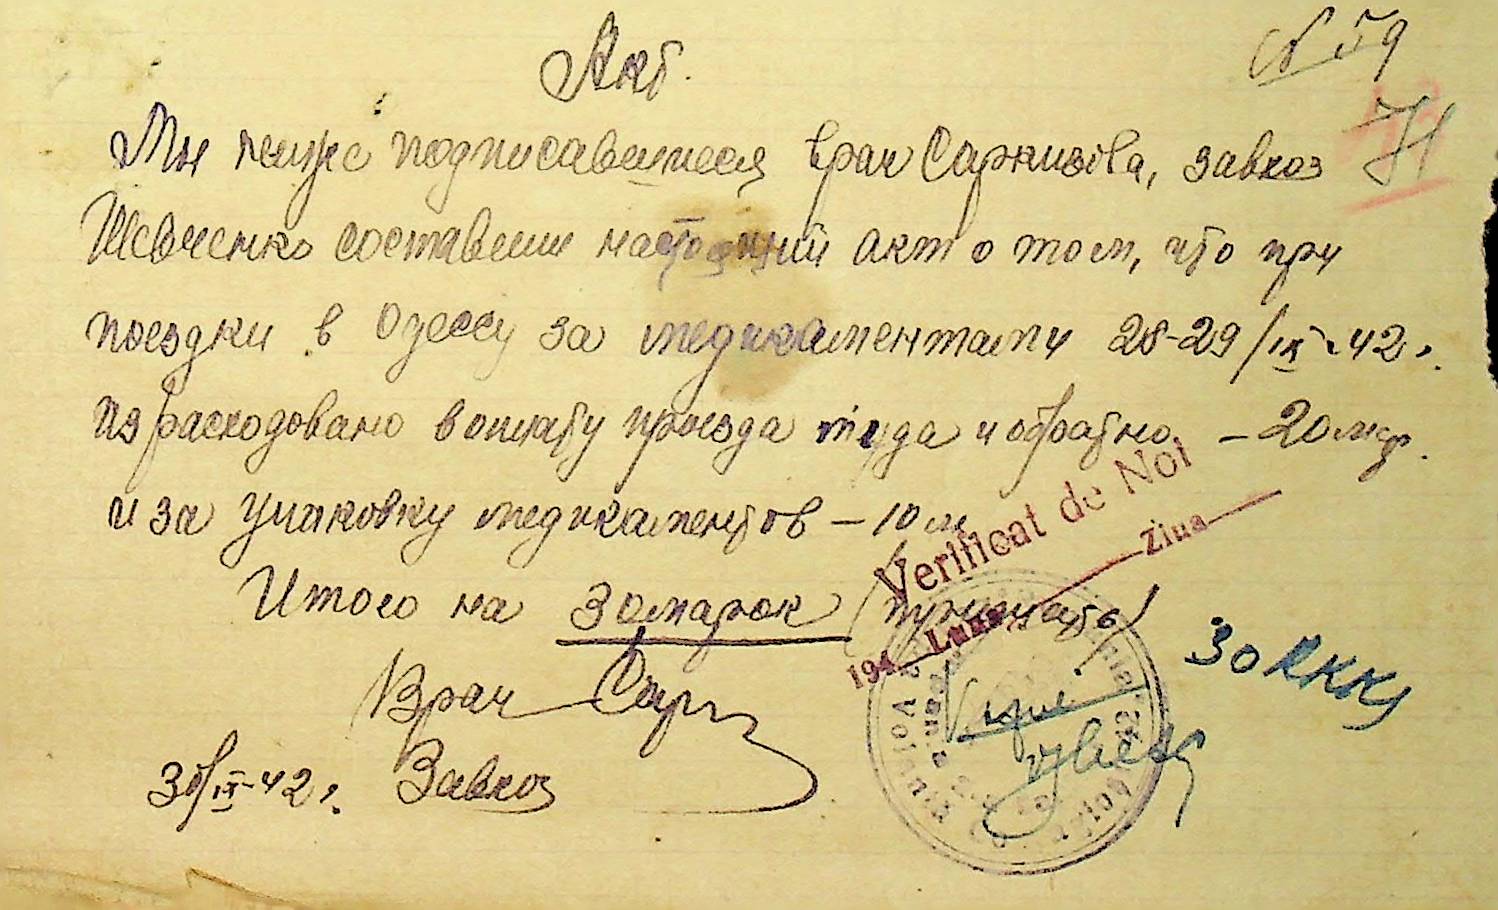 N 59
Акт.
Мы ниже подписавшиеся врач Саркизова, завхоз
Шевченко составили настоящий акт о том, что при
поездки в Одессу за медикаментами 28-29/IX-42г.
израсходовано в оплату проезда туда и обратно - 20 мар.
и за упаковку медикаментов - 10 м.
Итого на 30 марок (тридцать)
Verificat de Noi
Ziua
194 Luna
30 RKKS
Врач Сарк
30/IX-42г. Завхоз